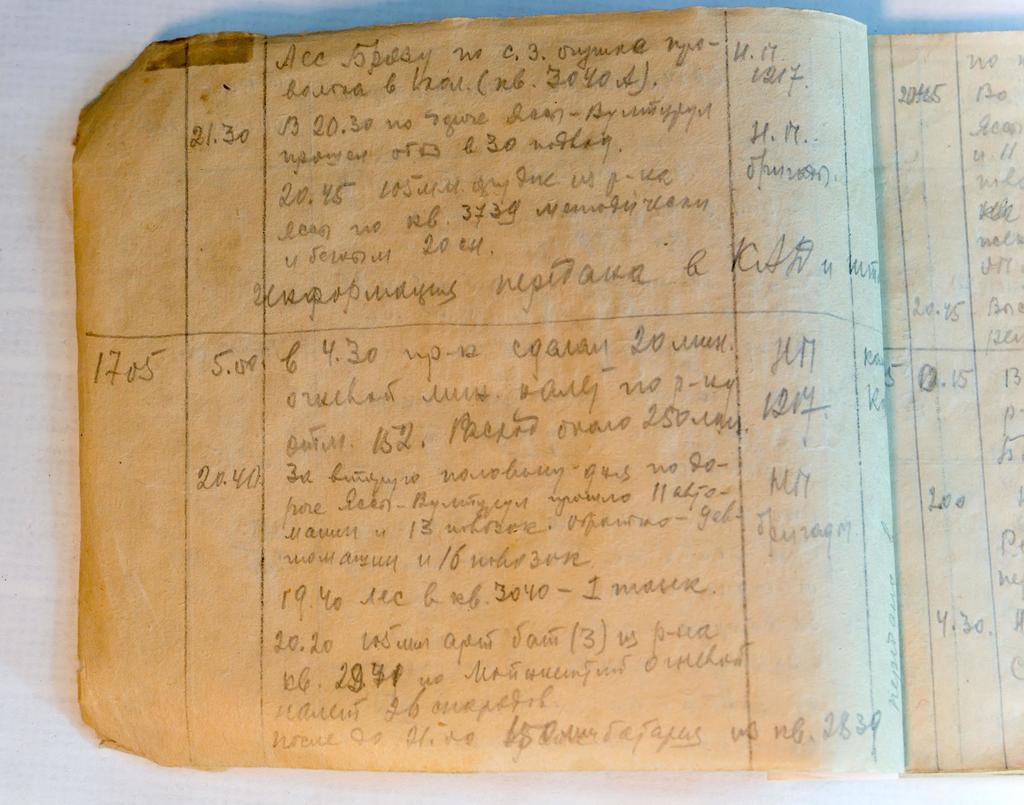 Лес Бразу по с. з. опушка про-
волока в 1 кол. (кв. 3040 А).
Н.П.
1217.
21.30 В 20.30 по дороге Яссы-Вултурул
прошел обоз в 30 подвод.
Н.П.
бригады.
20.45 105 мм. орудие из р-на
Яссы по кв. 3739 методически
и беглым 20 сн.
Информация передана в КАД и шт
1705 5.00 В 4.30 пр-к сделал 20 мин.
огневой мин. налет по р-ну
отм. 152. Расход около 250 мин.
НП
1217.
20.40 За вторую половину дня по до-
роге Яссы-Вултурул прошло 11 авто-
машин и 13 повозок. обратно - 9 ав-
томашин и 16 повозок
НП
бригады.
19.40 лес в кв. 3040 - 1 танк.
20.20 105 мм арт бат (3) из р-на
кв. 2941 по огневой
налет 26 снарядов.
после до 21.00 150 мм батарея из кв. 2839
передана
20.45 Во
Яссы
и 11
20.45
0.15 В
р-
200
4.30.